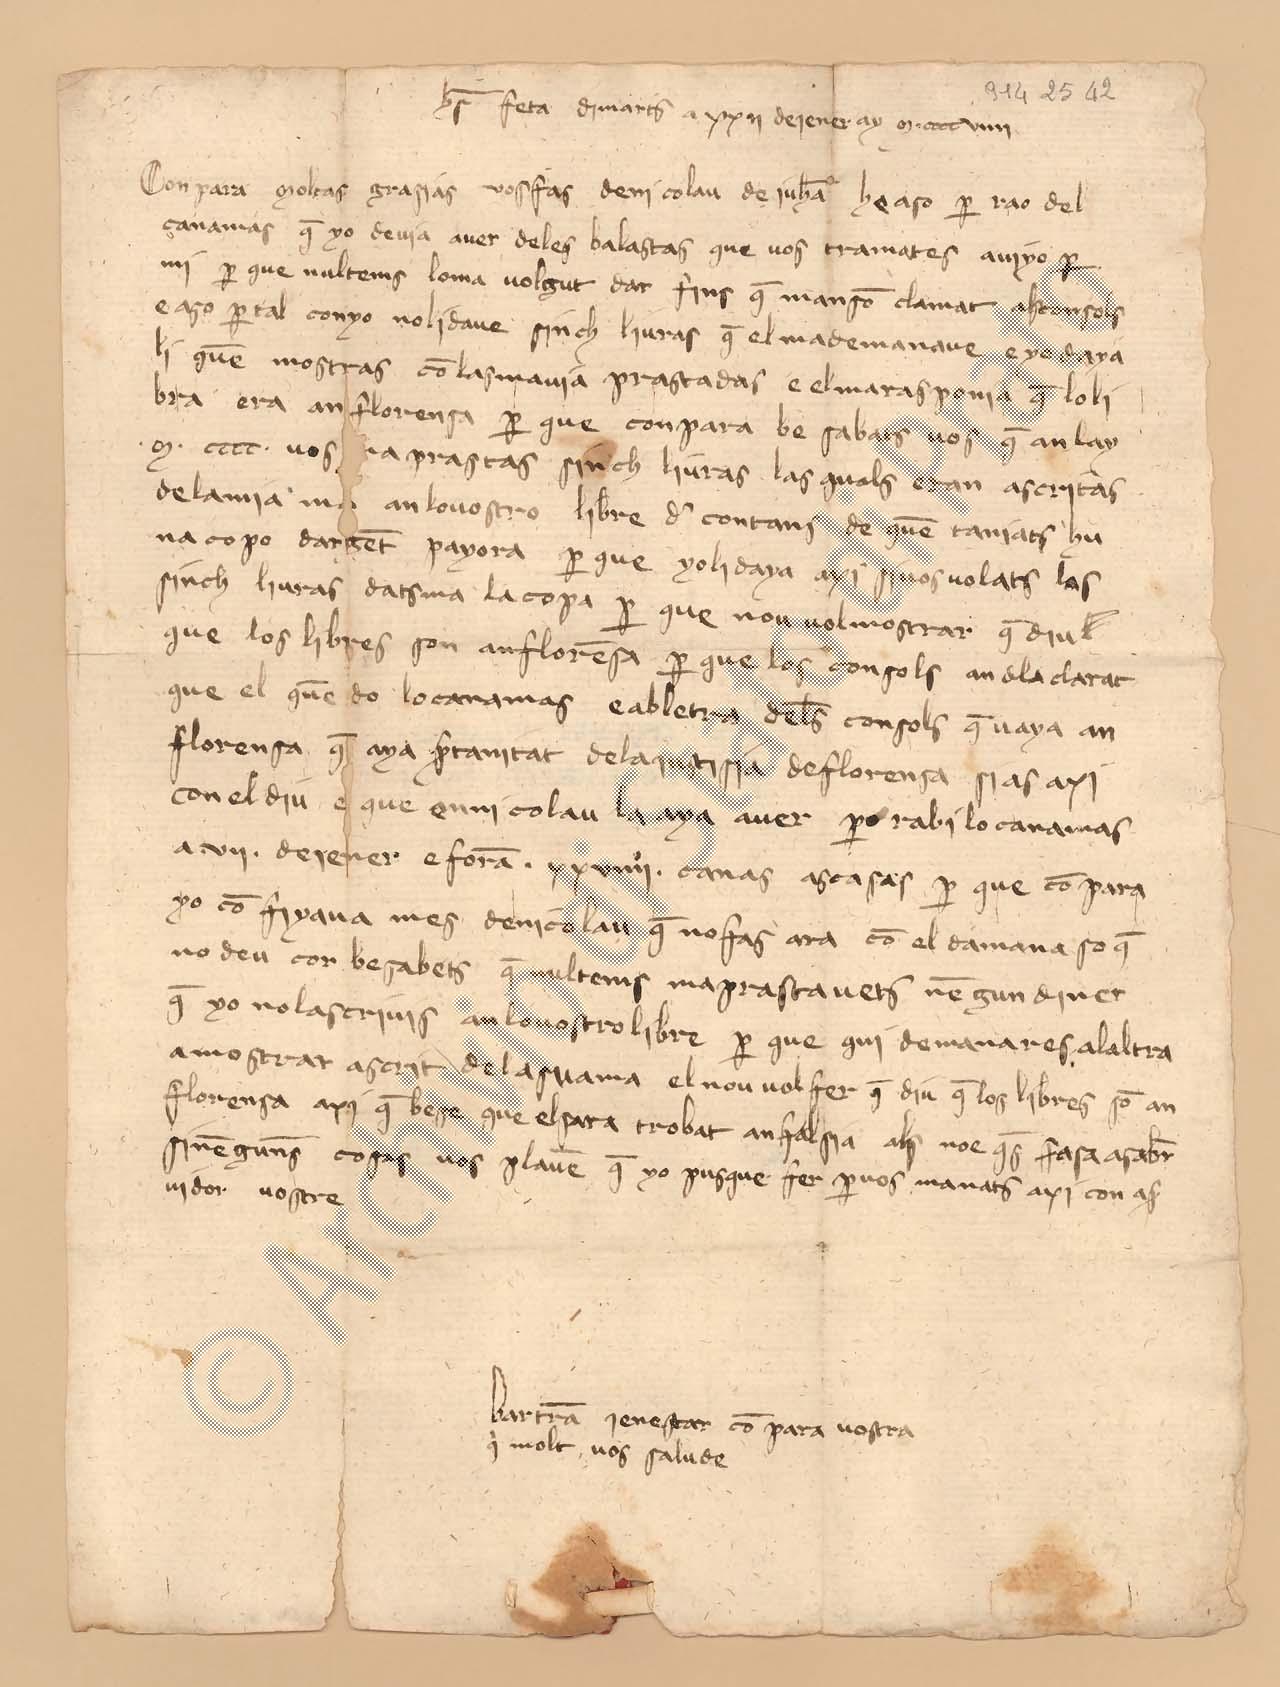 914 25 42
feta dimarts a xxii de iener ay m cccc viiii
Conpara moltas grasias vos fas de nicolau de he aso p rao del
canamas q yo devia aver deles balastas que vos tramates aviyo p
mi p que nultems loma volgut dar fins q manso clamat als consols
e aso p tal con yo noli dave sinch liuras q el ma demanave e yo daya
li que mostras co las mavia prastadas e el ma rasponia q lo li
bra era an florensa p que conpara be sabets vos q an lay
m cccc vos ma prastas sinch liuras las quals eran ascritas
dela mia ma an lo vostro libre d contans de que taniats hu
na copo dargent payora p que yo li daya axi si vos volats los
sinch liuras datsma la copa p que nou vol mostrar q diu
que los libres son an florensa p que los consols an dlaclarat
que el que do lo canamas e ab letra dels consols q vaya an
florensa q aya ptanitat dela iustisia de florensa si as axi
con el diu e que en nicolau la aya aver po rabi lo canamas
a vii de iener e foran xxviiii canas ascasas p que co para
yo co fiyava mes de nicolau q no fas ara co el damana so q
no deu cor be sabets q nultems ma prastavets negun diner
q yo no lascrivis an lo vostro libre p que qui demanares alaltra
a mostrat ascrit dela sua ma el nou vol fer q diu q los libres so an
florensa axi q be se que el sara trobat an falsia als noe q fasa asabr
si neguns cosas vos plaue q yo pusque fer p vos manats axi con a ser
vidor vostre
Bartra ienestar co para vostra
q molt vos salude
© Archivio di Stato di Prato